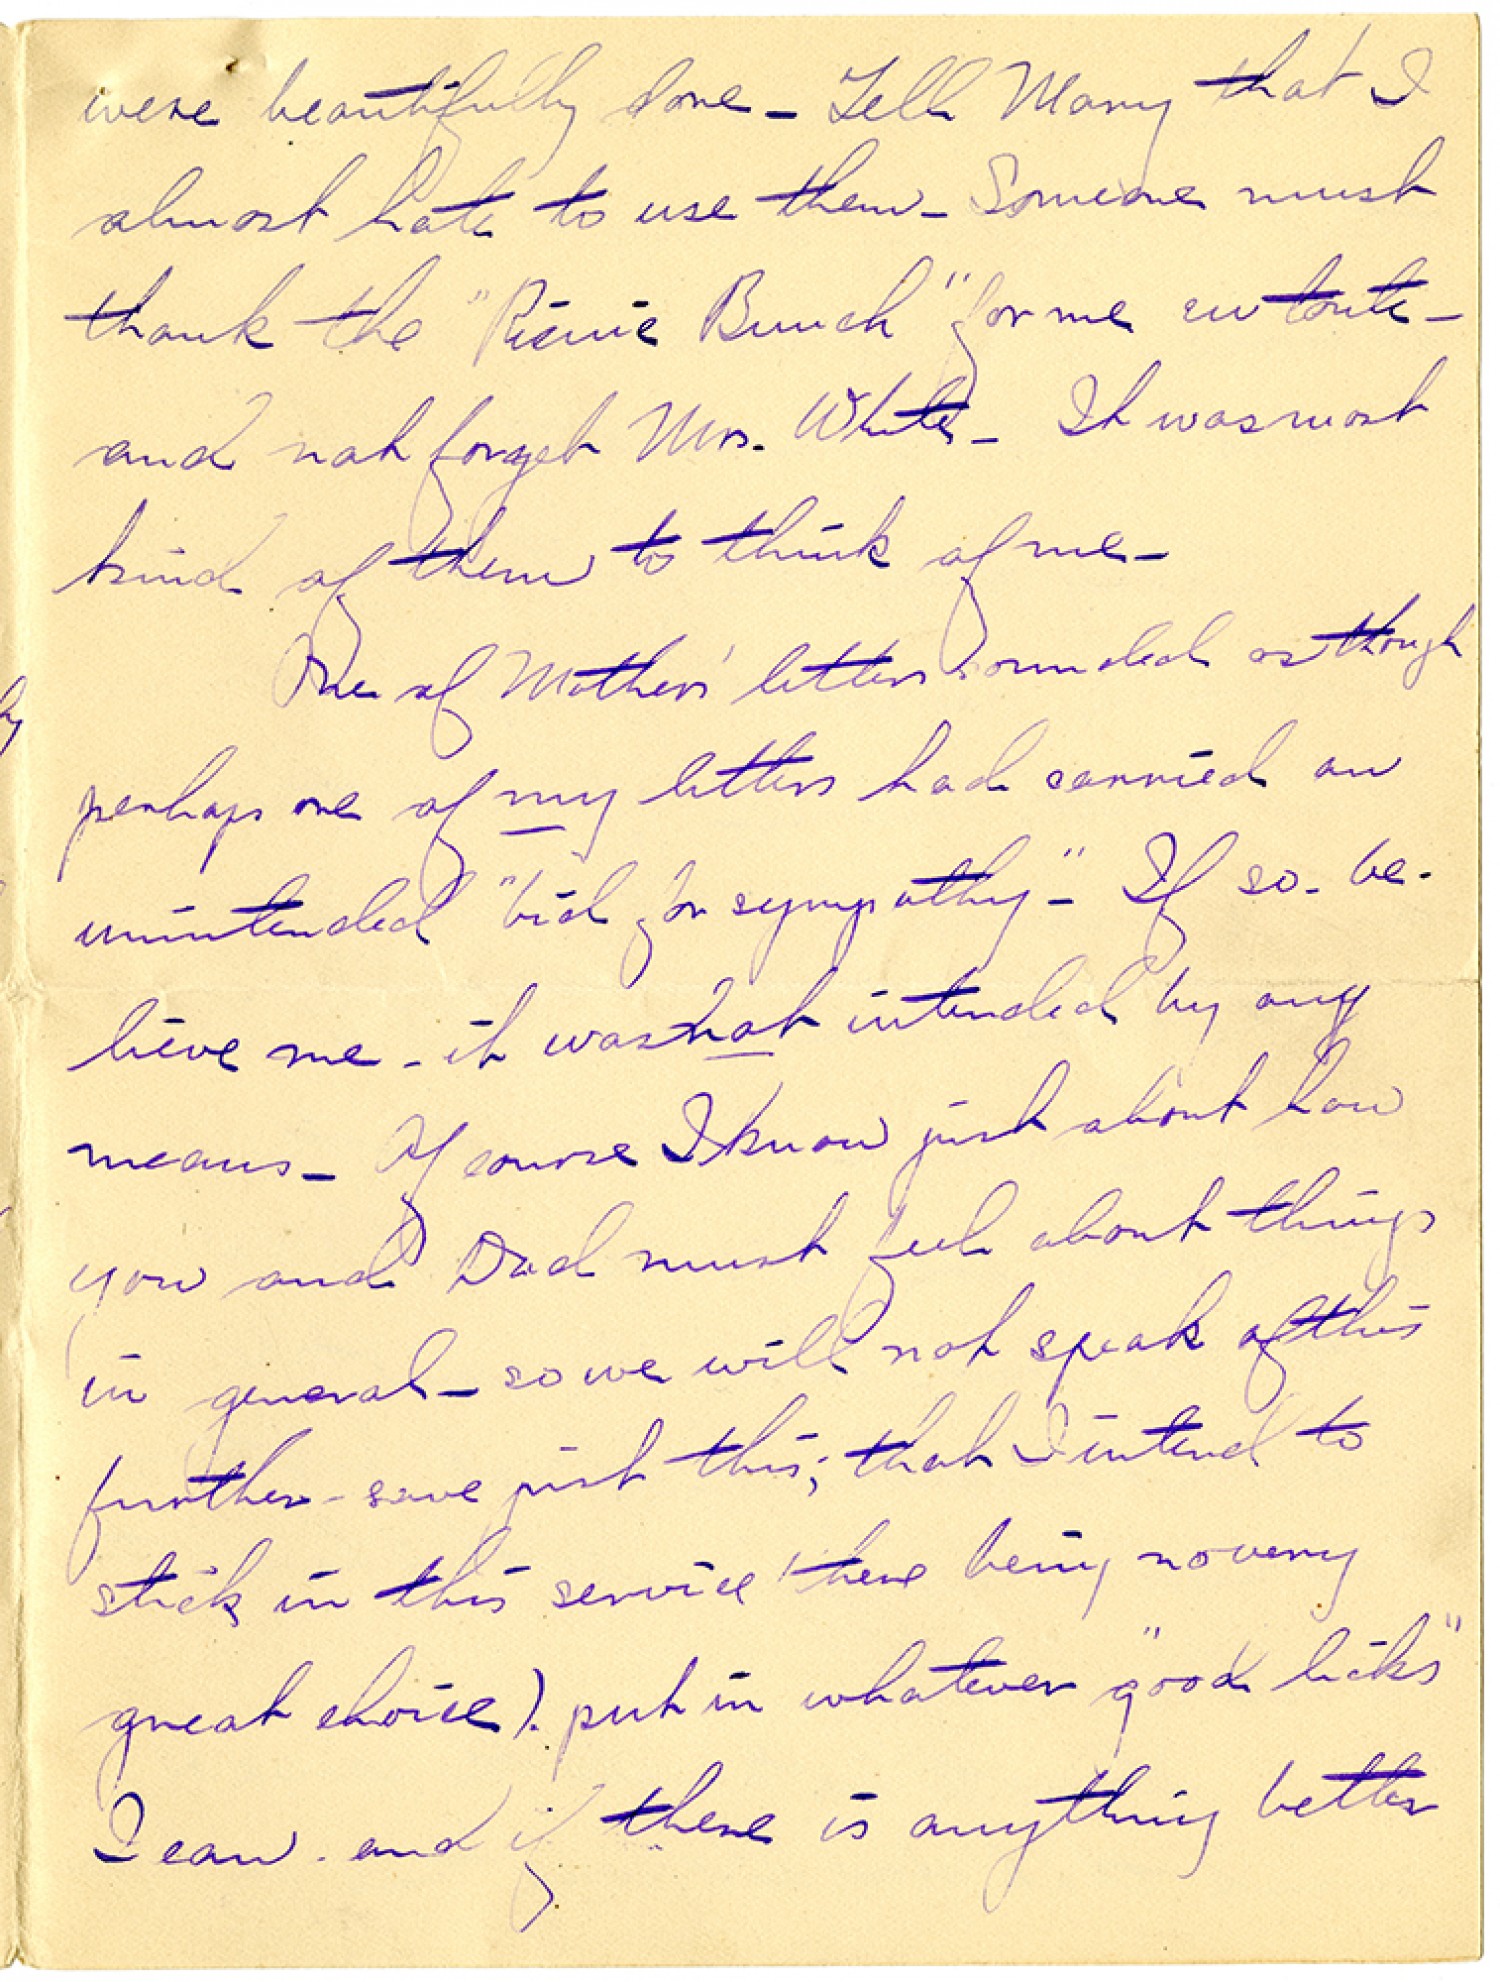 were beautifully done - Tell Mary that I
almost hate to use them - Someone must
thank the "Picnic Bunch" for me en toute -
and not forget Mrs. White - It was most
kind of them to think of me -
One of Mother's letters sounded as though
perhaps one of my letters had carried an
unintended "bid for sympathy" - If so - be-
lieve me - it was not intended by any
means - Of course I know just about how
you and Dad must feel about things
in general - so we will not speak of this
further - save just this; that I intend to
stick in this service (there being no very
great choice). put in whatever "good licks"
I can - and if there is anything better